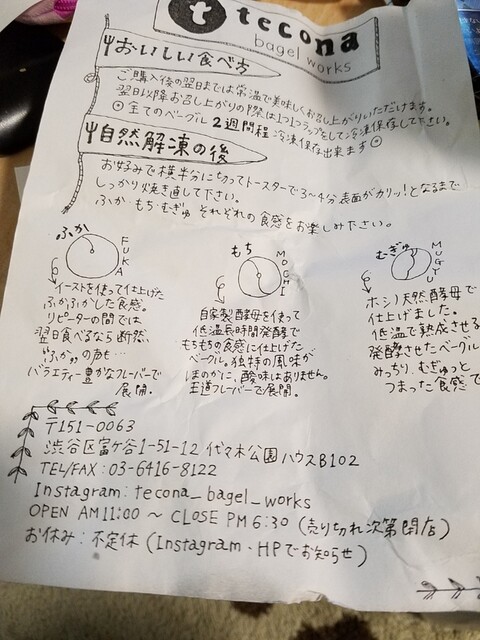 t tecona
bagel works
おいしい食べ方
ご購入後の翌日までは常温で美味しくお召し上がりいただけます。
翌日以降お召し上がりの際は1つ1つラップをして冷凍保存して下さい。
◎全てのベーグル2週間程冷凍保存出来ます◎
自然解凍の後
お好みで横半分に切ってトースターで3〜4分表面がカリッ!となるまで
しっかり焼き直して下さい。
ふか・もち・むぎゅ それぞれの食感をお楽しみ下さい。
ふか
FUKA
イーストを使って仕上げた
ふかふかした食感。
リピーターの間では
翌日食べるなら断然、
"ふか"の声も…
バラエティー豊かなフレーバーで
展開.
もち
MOCHI
自家製酵母を使って
低温長時間発酵で
もちもちの食感に仕上げた
ベーグル。独特の風味が
ほのかに、酸味はありません。
王道フレーバーで展開.
むぎゅ
MUGYU
ホシノ天然酵母で
仕上げました。
低温で熟成させる
発酵させたベーグル
みっちり、むぎゅっと
つまった食感で
〒151-0063
渋谷区富ヶ谷1-51-12 代々木公園ハウスB102
TEL/FAX:03-6416-8122
Instagram: tecona_bagel_works
OPEN AM11:00 〜 CLOSE PM 6:30 (売り切れ次第閉店)
お休み:不定休 (Instagram・HPでお知らせ)